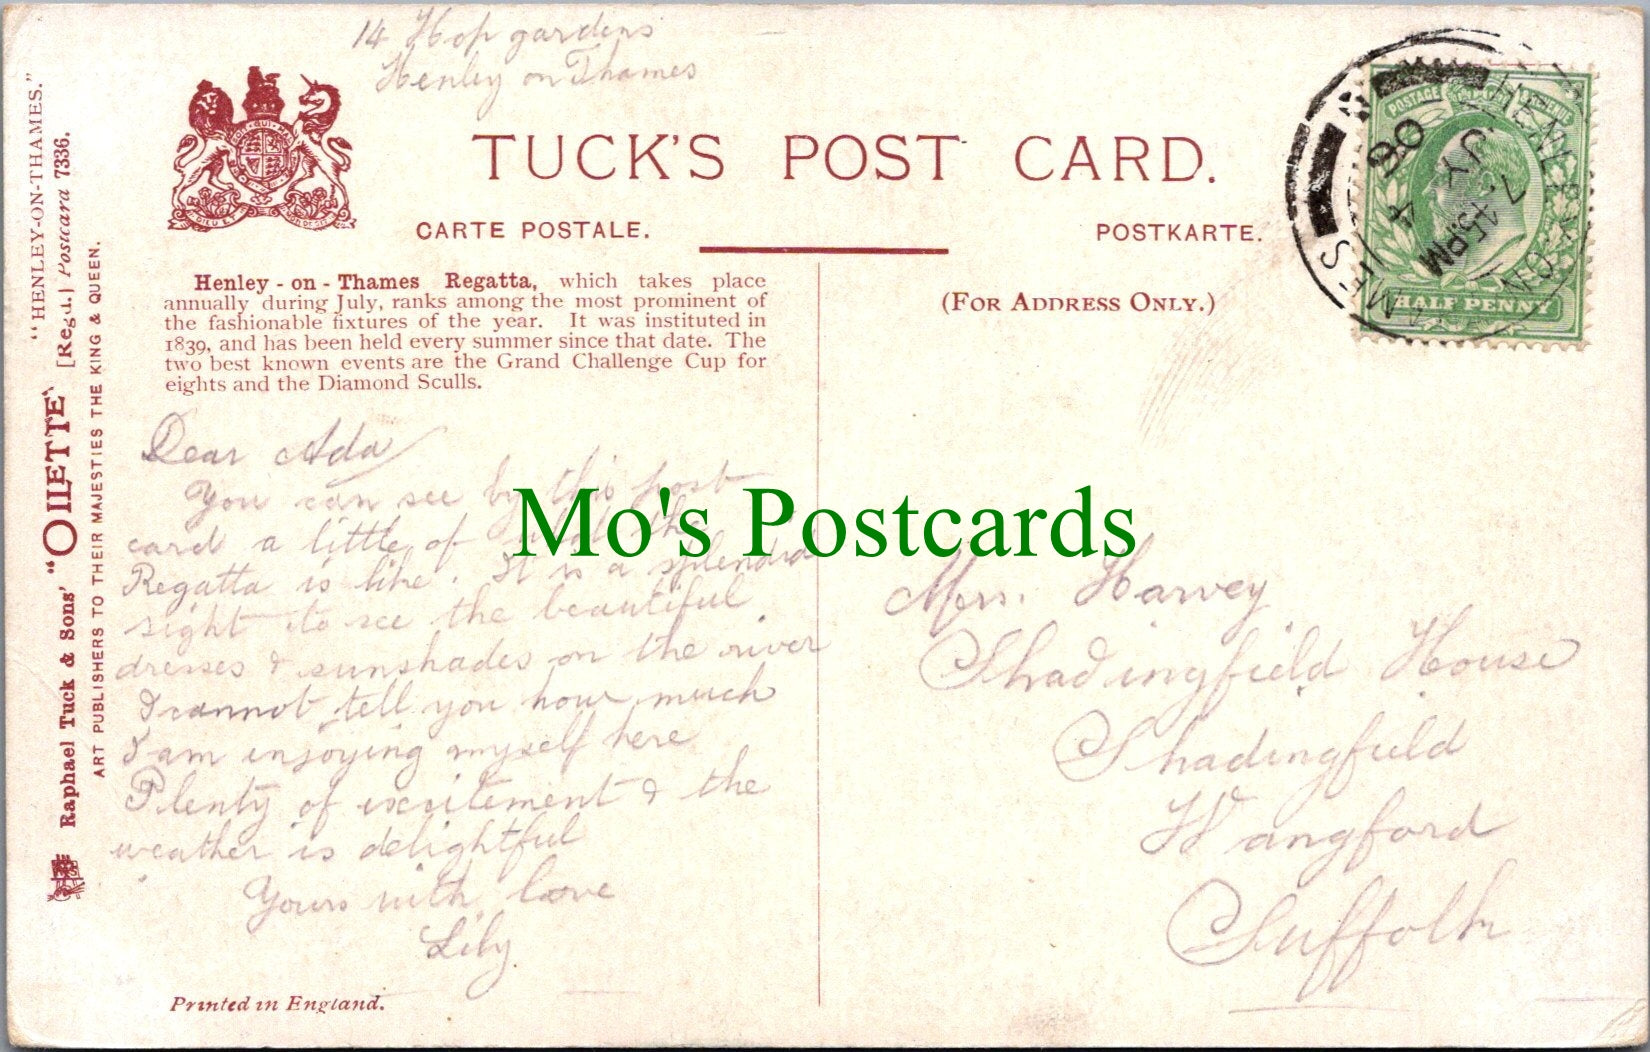 14 Hop gardens
Henley on Thames
TUCK'S POST CARD.
CARTE POSTALE.
POSTKARTE.
"HENLEY-ON-THAMES."
Raphael Tuck & Sons' "OILETTE" [Regd.] Postcard 7336.
ART PUBLISHERS TO THEIR MAJESTIES THE KING & QUEEN.
Henley-on-Thames Regatta, which takes place
annually during July, ranks among the most prominent of
the fashionable fixtures of the year. It was instituted in
1839, and has been held every summer since that date. The
two best known events are the Grand Challenge Cup for
eights and the Diamond Sculls.
(FOR ADDRESS ONLY.)
POSTAGE
HALF PENNY
HENLEY-ON-THAMES
7.45.PM
JY 4
06
Dear Ada
You can see by this post
card a little of what the
Regatta is like. It is a splendid
sight to see the beautiful
dresses & sunshades on the river
I cannot tell you how much
I am enjoying myself here
Plenty of excitement & the
weather is delightful
Yours with love
Lily.
Mo's Postcards
Mrs. Harvey
Shadingfield House
Shadingfield
Wangford
Suffolk
Printed in England.